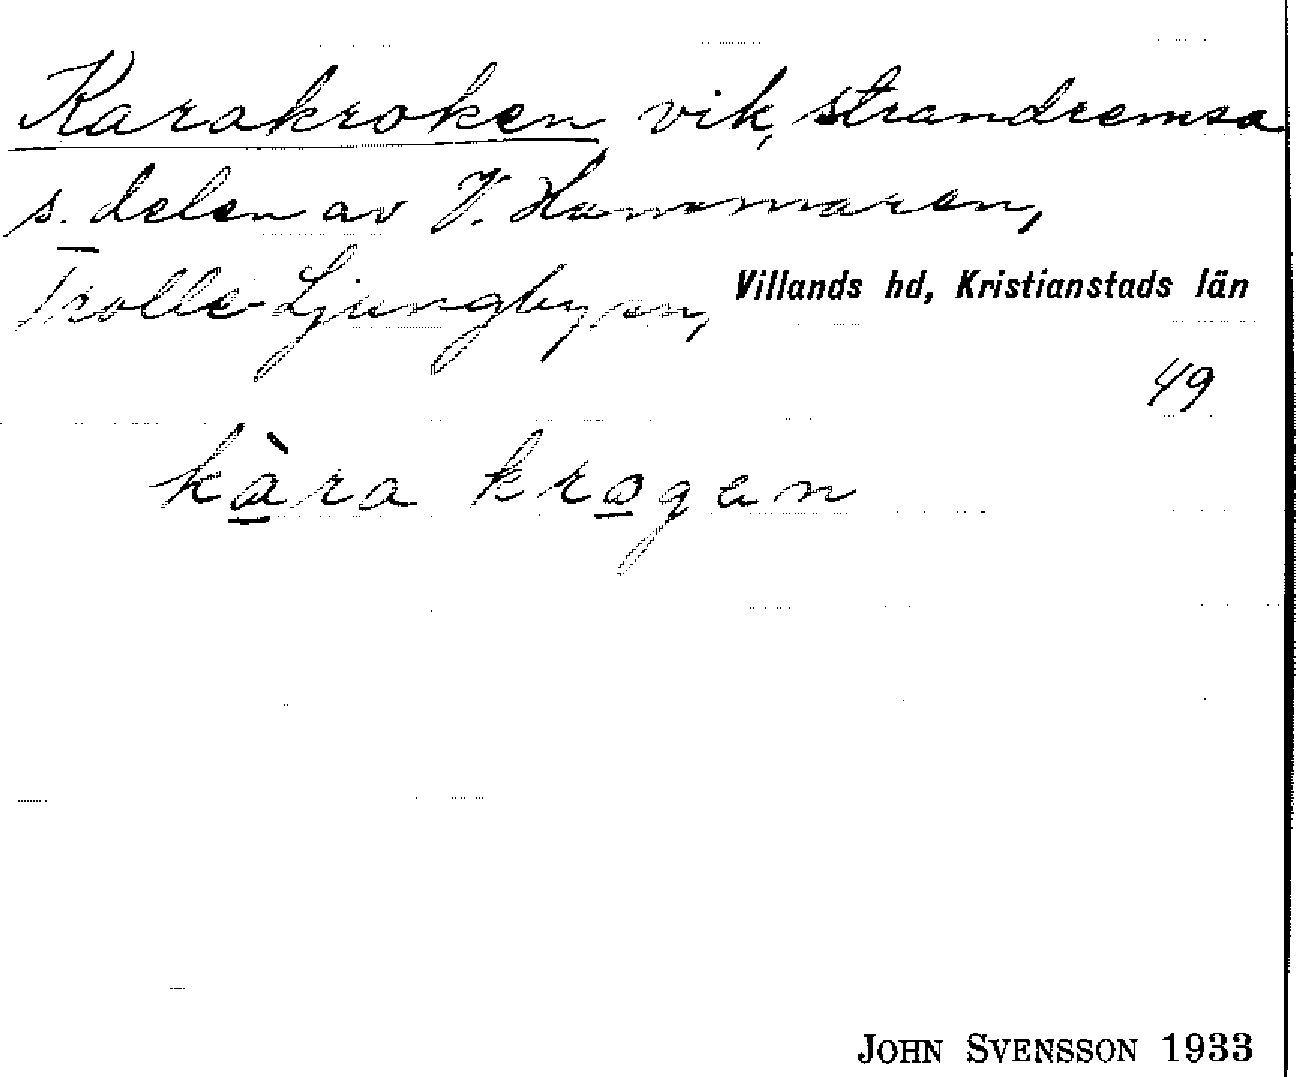 Karakroken vik, strandremsa
s. delen av V. Hammaren,
Trolle-Ljungby sn, Villands hd, Kristianstads län
49
kàra krogen
JOHN SVENSSON 1933